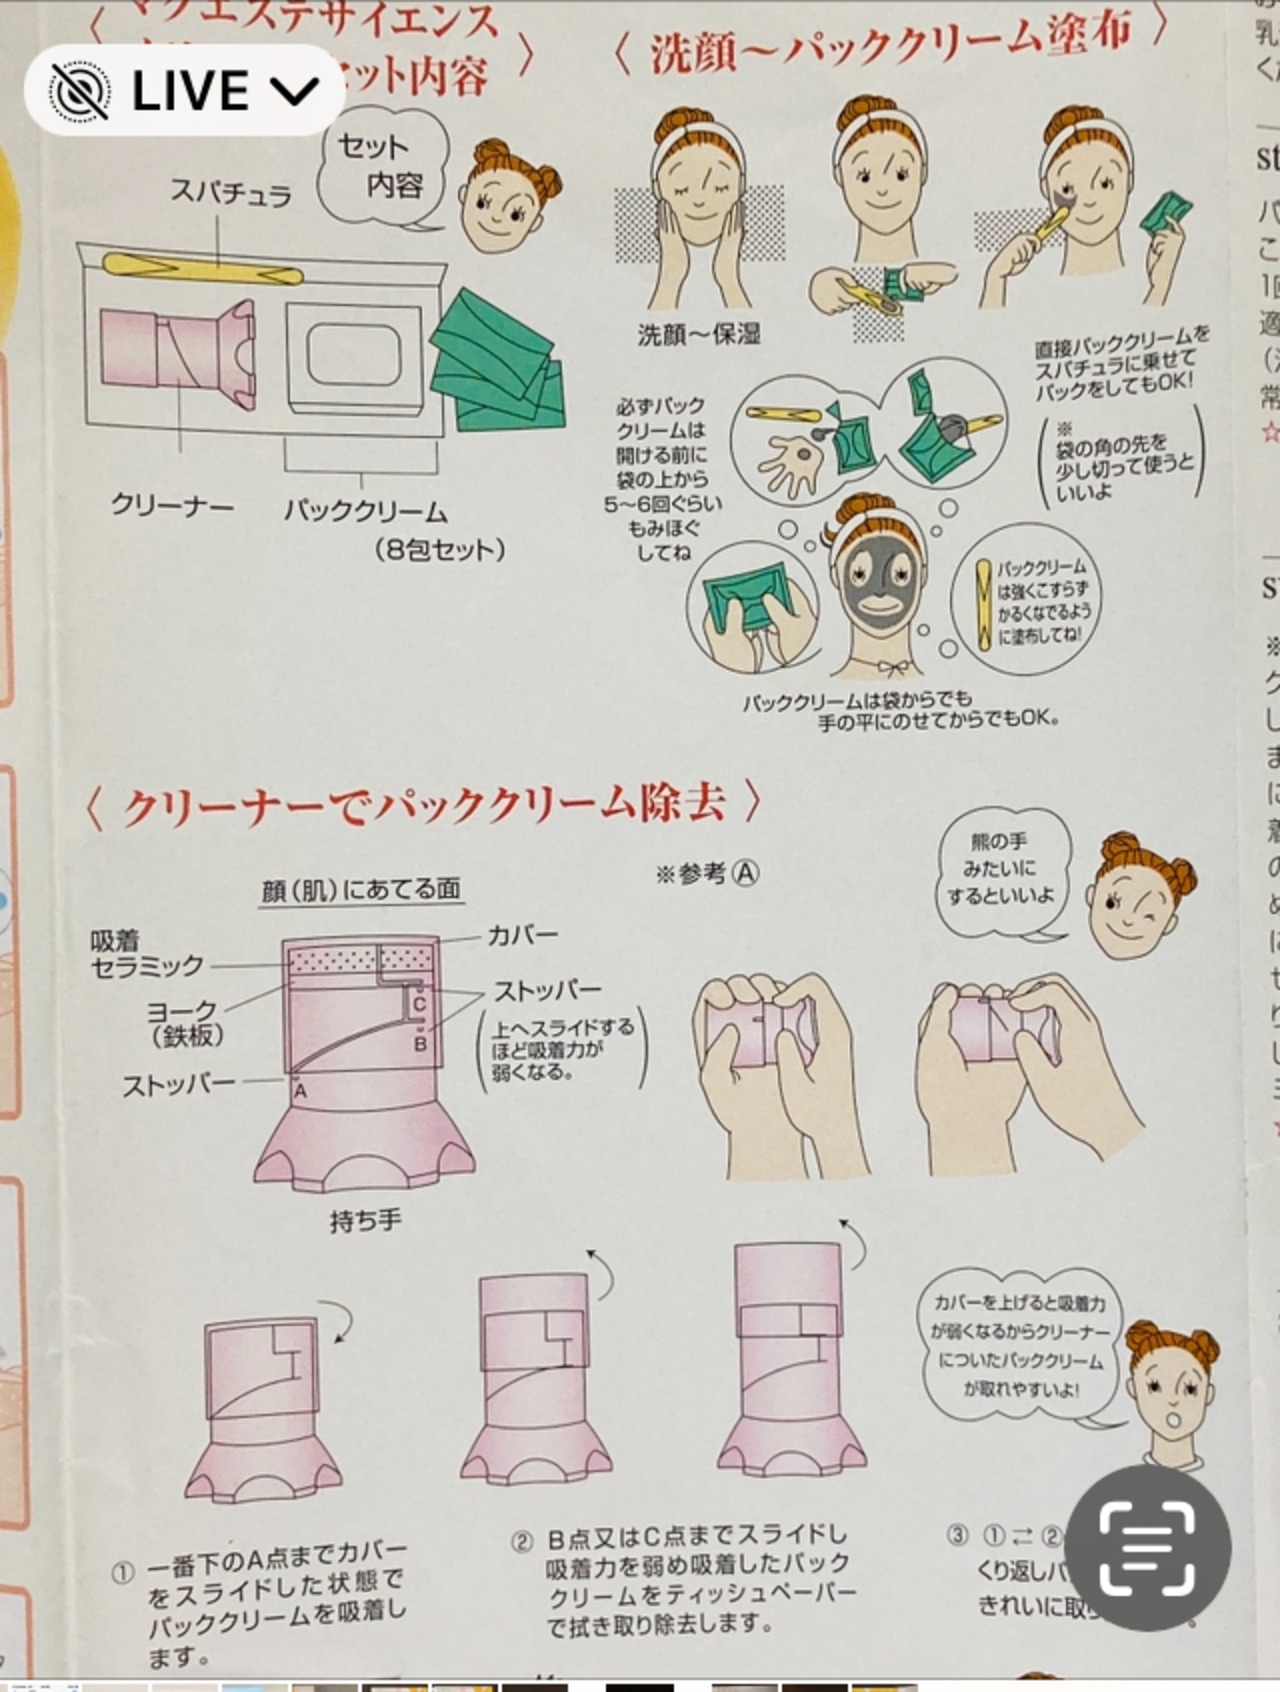 〈 マグエステサイエンス
ット内容 〉
セット
内容
スパチュラ
クリーナー
パッククリーム
（8包セット）
〈 洗顔～パッククリーム塗布 〉
洗顔～保湿
直接パッククリームを
スパチュラに乗せて
パックをしてもOK!
※
袋の角の先を
少し切って使うと
いいよ
必ずパック
クリームは
開ける前に
袋の上から
5～6回ぐらい
もみほぐ
してね
パッククリーム
は強くこすらず
かるくなでるよう
に塗布してね!
パッククリームは袋からでも
手の平にのせてからでもOK。
〈 クリーナーでパッククリーム除去 〉
※参考Ⓐ
熊の手
みたいに
するといいよ
顔（肌）にあてる面
吸着
セラミック
ヨーク
（鉄板）
ストッパー
カバー
ストッパー
（上へスライドする
ほど吸着力が
弱くなる。）
C
B
A
持ち手
カバーを上げると吸着力
が弱くなるからクリーナー
についたパッククリーム
が取れやすいよ!
① 一番下のA点までカバー
をスライドした状態で
パッククリームを吸着し
ます。
② B点又はC点までスライドし
吸着力を弱め吸着したパック
クリームをティッシュペーパー
で拭き取り除去します。
③ ①⇄②
くり返しパ
きれいに取
LIVE